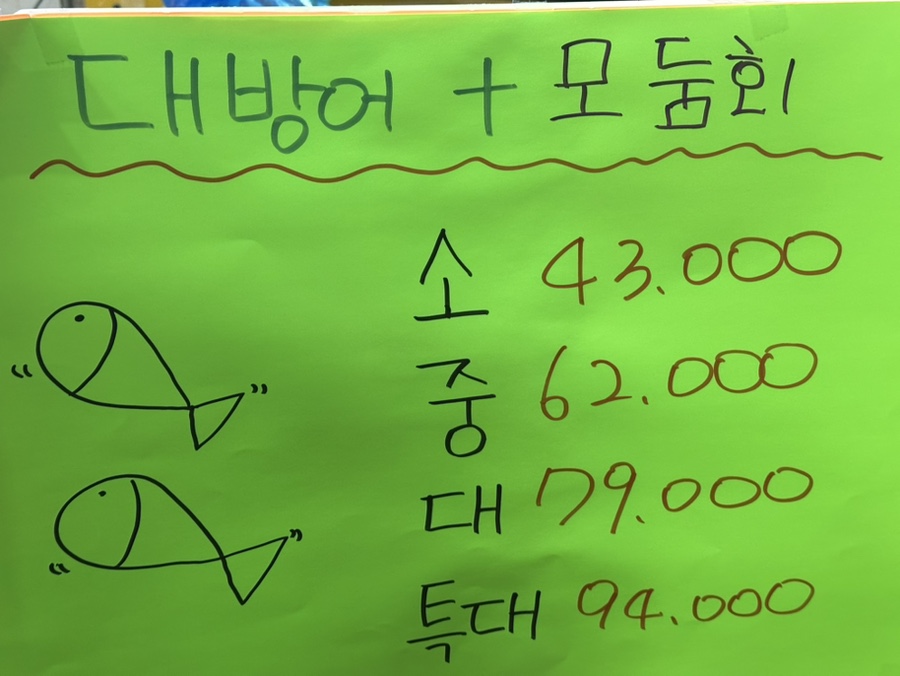 대방어 + 모둠회
소 43.000
중 62.000
대 79.000
특대 94.000